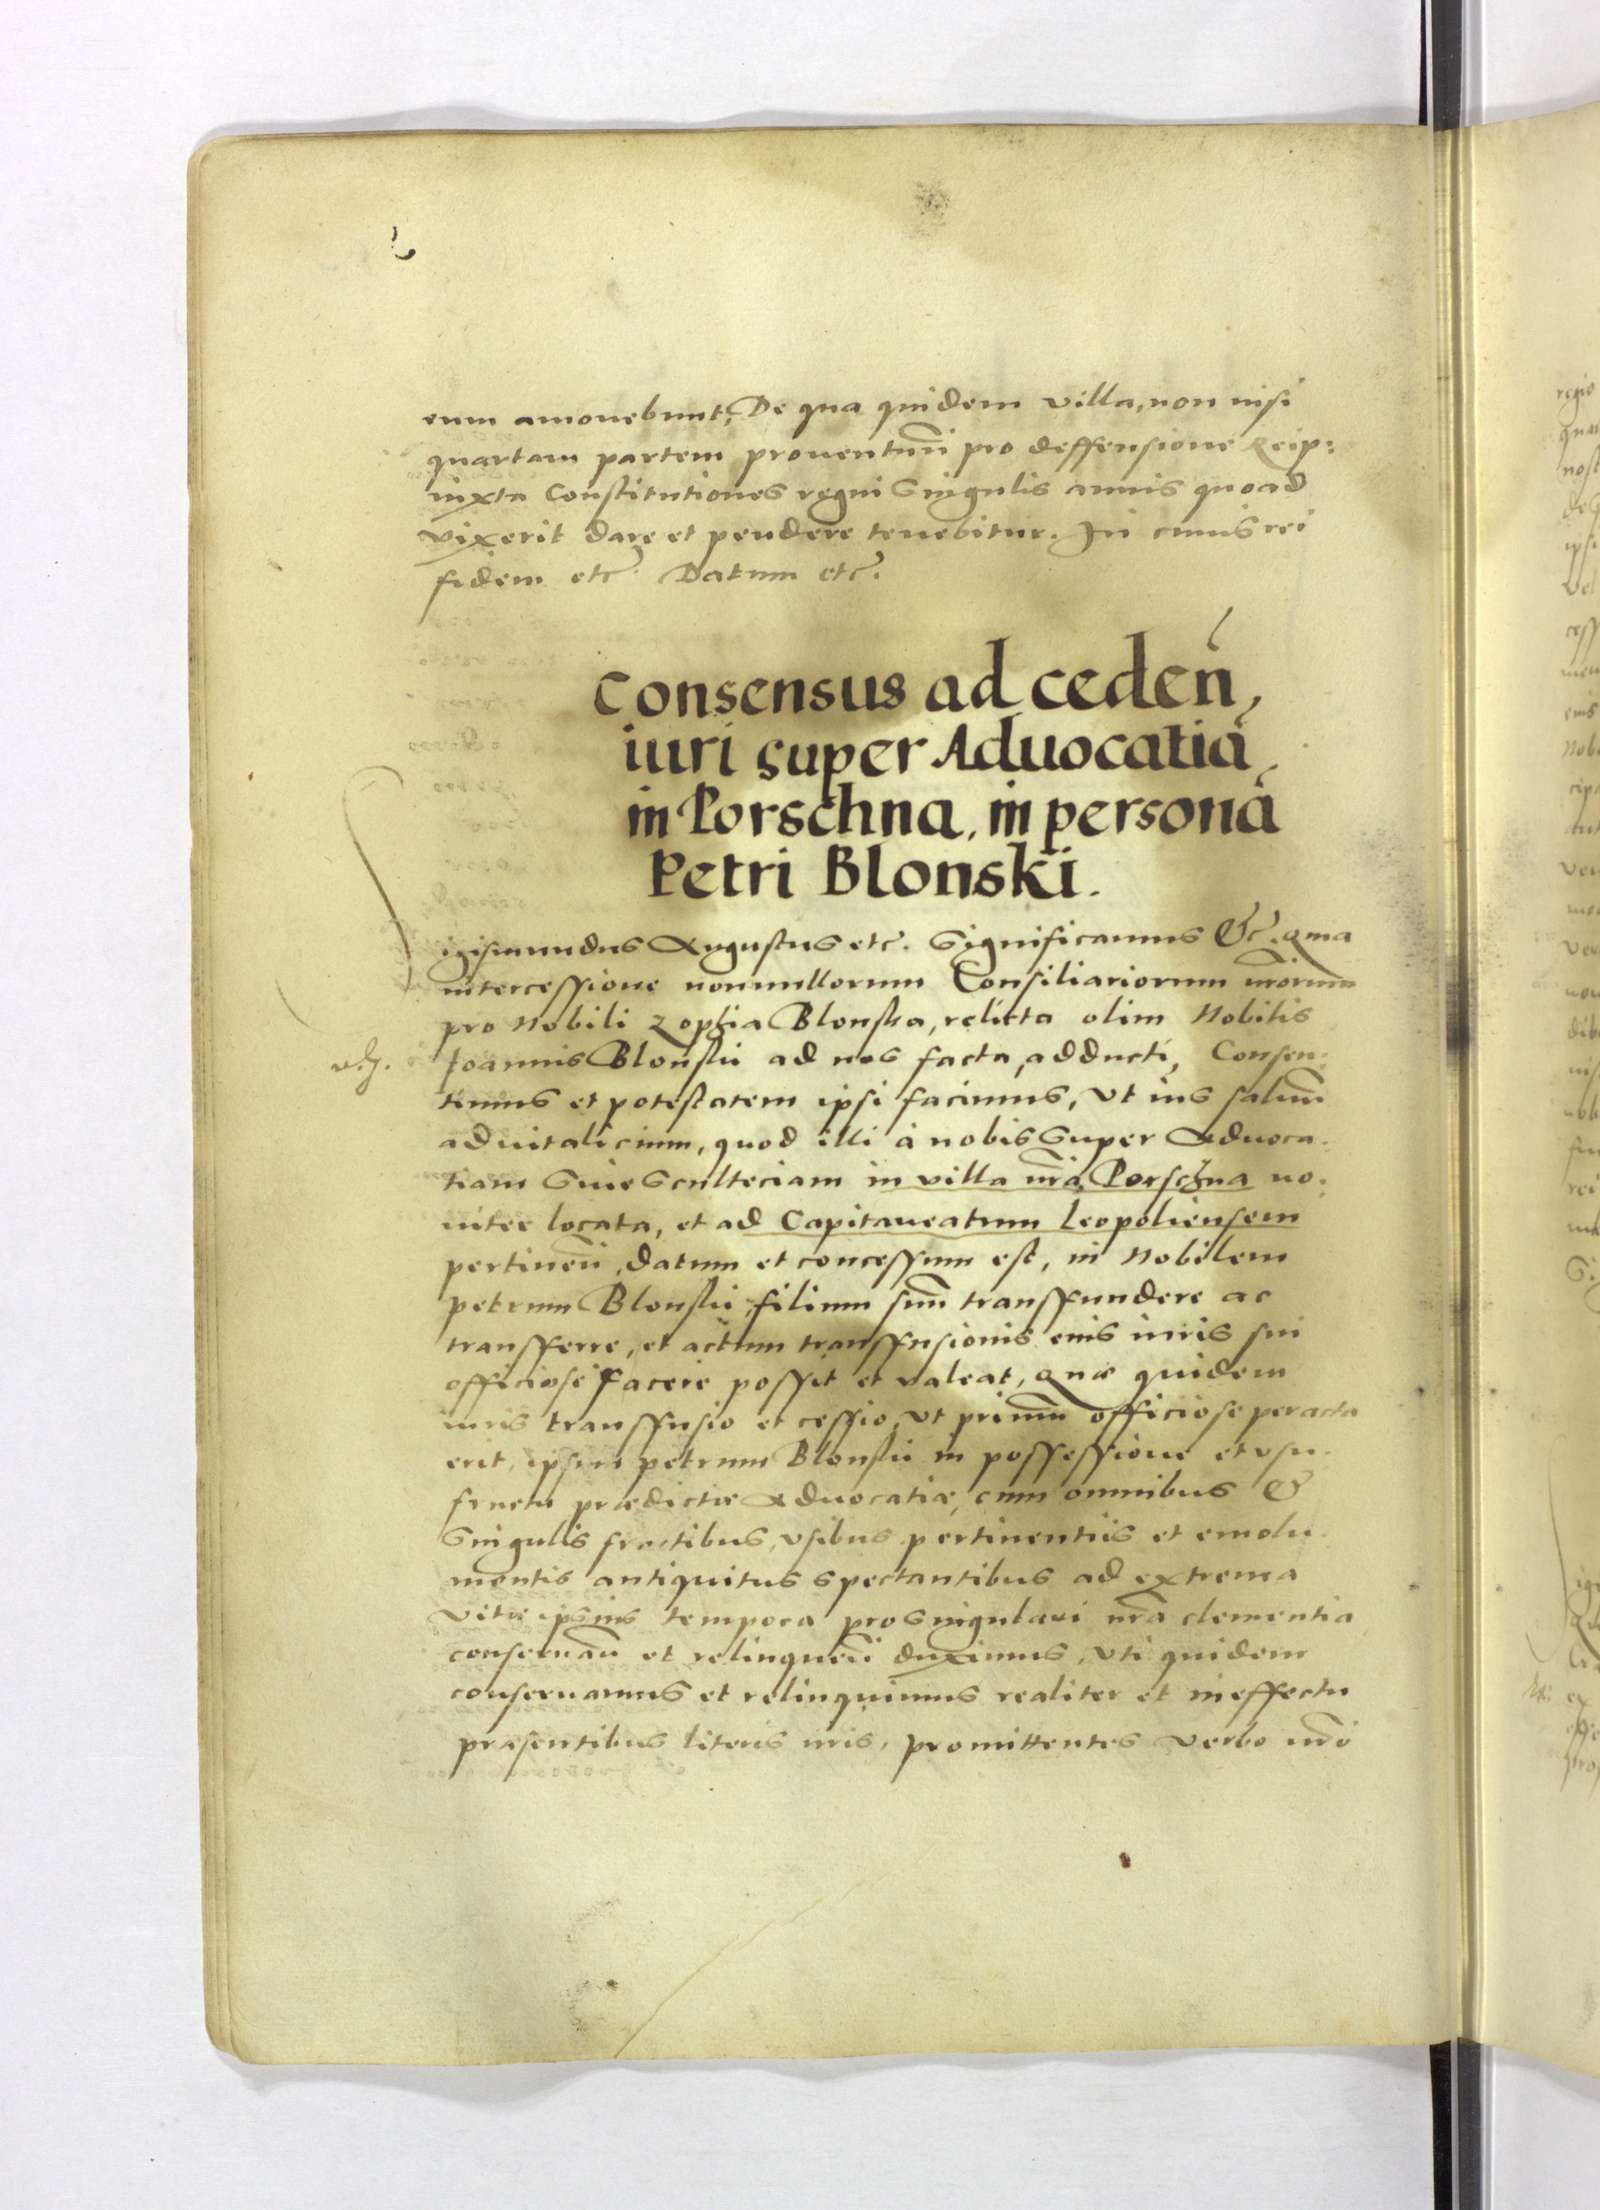 eum amouebunt, De qua quidem villa, non nisi
quartam partem prouentuū pro deffensione Reip:
iuxta Constitutiones regni Singulis annis quoad
vixerit dare et pendere tenebitur. In cuius rei
fidem etc. Datum etc.
Consensus ad ceden̄,
iuri super Aduocatiā
in Porschna, in personā
Petri Blonski.
igismundus Augustus etc. Significamus &c. Quia
intercessione nonnullorum Consiliariorum nr̄orum
pro Nobili Zophia Blonska, relicta olim Nobilis
Joannis Blonskii ad nos facta, adducti, Consen-
timus et potestatem ipsi facimus, Vt ius saluū
aduitalicium, quod illi à nobis Super Aduoca-
tiam Siue Sculteciam in villa nr̄a Porschna no-
uiter locata, et ad Capitaneatum Leopoliensem
pertineñ, datum et concessum est, in Nobilem
petrum Blonskii filium suū transfundere ac
transferre, et actum transfusionis eius iuris sui
officiose facere possit et valeat, Quæ quidem
iuris transfusio et cessio, Vt primū officiose peracta
erit, ipsum petrum Blonskii in possessione et vsu-
fructu prædictæ Aduocatiæ, cum omnibus &
Singulis fructibus, vsibus pertinentiis et emolu-
mentis antiquitus spectantibus ad extrema
vitæ ipsius tempora pro Singulari nr̄a clementia
conseruāñ et relinquēñ duximus, Vti quidem
conseruamus et relinquimus realiter et in effectu
præsentibus literis nr̄is, promittentes verbo nr̄o